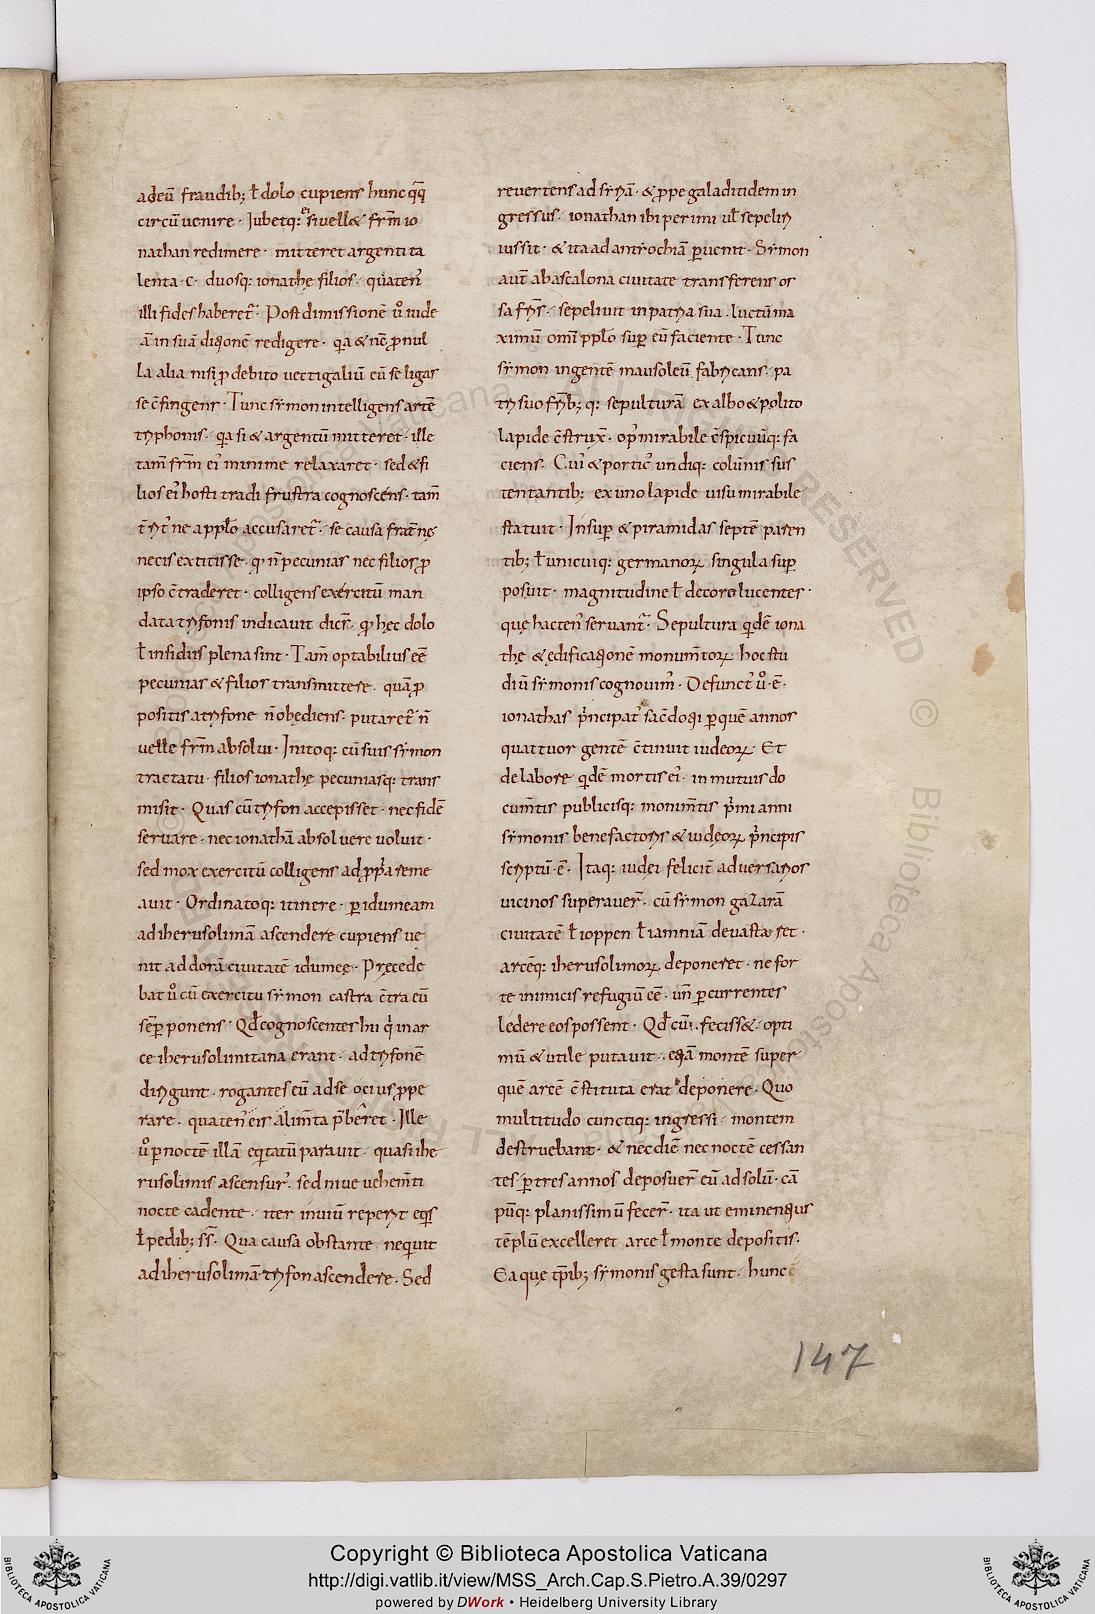 adeū fraudib; ł dolo cupiens hunc qq̄
circūuenire · Jubetq: si uellæ fr̄m io
nathan redimere · mitteret argenti ta
lenta · c · duosq: ionathę filios · quaten᷒
illi fides haberet᷒ · Post dimissionē u᷒o iude
ā in suā diqionē redigere · qa & nē p nul
la alia nisi p debito uectigaliū eū se ligas
se c̄fingens · Tunc sẏmon intelligens artē
tẏphonis · qa si & argentū mitteret · ille
tam̄ fr̄m ei᷒ minime relaxaret · sed & fi
lios ei᷒ hosti tradi frustra cognoscens · tam̄
ne a pplo accusaret᷒ · se causa frat̄nę
necis extitisse · q n̄ pecunias nec filios p
ipso c̄traderet · colligens exercitū man
data trẏfonis indicauit dic̄s · q hęc dolo
ł insidiis plena sint · Tam̄ optabilius eē̄
pecunias & filios transmittere · quā p
positis a trẏfone n̄ obędiens · putaret᷒ n̄
uelle fr̄m absolui · Initoq: cū suis sẏmon
tractatu · filios ionathę pecuniasq: trans
misit · Quas cū trẏfon accepisset · nec fidē
seruare · nec ionathā absoluere uoluit ·
sed mox exercitū colligens ad ppra reme
auit · Ordinatoq: itinere · p idumeam
ad iherusolimā ascendere cupiens ue
nit ad dorā ciuitatē idumeę · Pręcede
bat u᷒o cū exercitu sẏmon castra c̄tra eū
semp ponens · Qd̄ cognoscentes hii qi in ar
ce iherusolimitana erant · ad trẏfonē
dirigunt · rogantes eū ad se ocius ppe
rare · quaten᷒ eis alim̄ta p̄beret · Ille
u᷒o p noctē illā eqitatū parauit · quasi ihe
rusolimis ascensur᷒ · sed niue uehem̄ti
nocte cadente · iter inuiū reperit eqis
ł pedib; ss̄ · Qua causa obstante nequit
ad iherusolimā trẏfon ascendere · Sed
reuertens ad sẏriā · & ppe galaditidem in
gressus · ionathan ibi perimi ul̄ sepeliri
iussit · & ita ad antiochiā puenit · Sẏmon
aut̄ ab ascalona ciuitate transferens os
sa fr̄is · sepeliuit in patria sua · luctū ma
ximū omi pplo sup eū faciente · Tunc
sẏmon ingentē mausoleū fabricans · pa
tri suo fr̄ib; q: sepulturā ex albo & polito
lapide c̄strux̄ · op᷒ mirabile c̄spicuūq: fa
ciens · Cui᷒ & portic᷒ undiq: colūnis sus
tentantib; ex uno lapide uisu mirabile
statuit · Insup & piramidas septē paren
tib; ł unicuiq: germanoꝝ singula sup
posuit · magnitudine ł decore lucentes ·
quę hacten᷒ seruant᷒ · Sepultura qidē iona
thę & ędificaqionē monum̄toꝝ hoc stu
diū sẏmonis cognouim᷒ · Defunct᷒ u᷒o · ē ·
ionathas p̄ncipat᷒ sac̄doqi p quē annos
quattuor gentē c̄tinuit iudeoꝝ · Et
de labore qidē mortis ei᷒ · in mutuis do
cum̄tis publicisq: monum̄tis p̄mi anni
sẏmonis benefactoris & iudęoꝝ p̄ncipis
scriptū · ē · Itaq: iudei felicit̄ aduersarios
uicinos superauer̄ · cū sẏmon gazarā
ciuitatē ł ioppen ł iamniā deuastasset ·
arcēq: iherusolimoꝝ deponeret · ne for
te inimicis refugiū eē̄ · un̄ pcurrentes
lędere eos possent · Qd̄ cū · fecissæ · opti
mū & utile putauit · eqiā montē super
quē arcē c̄stituta erat deponere · Quo
multitudo cunctiq: ingressi · montem
destruebant · & nec diē nec noctē cessan
tes p tres annos deposuer̄ eū ad solū · cā
pūq: planissimū fecer̄ · ita ut eminenqius
tēplū excelleret arce ł monte depositis ·
Ea quę tp̄ib; sẏmonis gesta sunt · hunc
147
Copyright © Biblioteca Apostolica Vaticana
http://digi.vatlib.it/view/MSS_Arch.Cap.S.Pietro.A.39/0297
powered by DWork • Heidelberg University Library